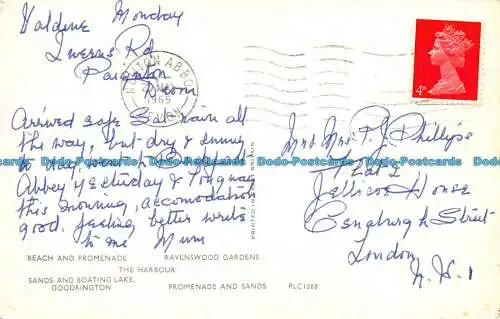 Valdene Monday
Inverus Rd
Paignton
Devon
Arrived safe Sat. rain all
the way, but dry & sunny
to day, went to
Abbey yesterday & Torquay
this morning, accomodation
good, feeling better write
to me Mum
NEWTON ABBOT
1969
DEVON
4D
Mr & Mrs P. J. Phillips
Flat 2
Jellicoe House
Osnaburgh Street
London
N.W.1
PRINTED IN GREAT BRITAIN
BEACH AND PROMENADE RAVENSWOOD GARDENS
THE HARBOUR
SANDS AND BOATING LAKE,
GOODRINGTON PROMENADE AND SANDS PLC1588
Dodo-Postcards Dodo-Postcards Dodo-Postcards Dodo-Postcards